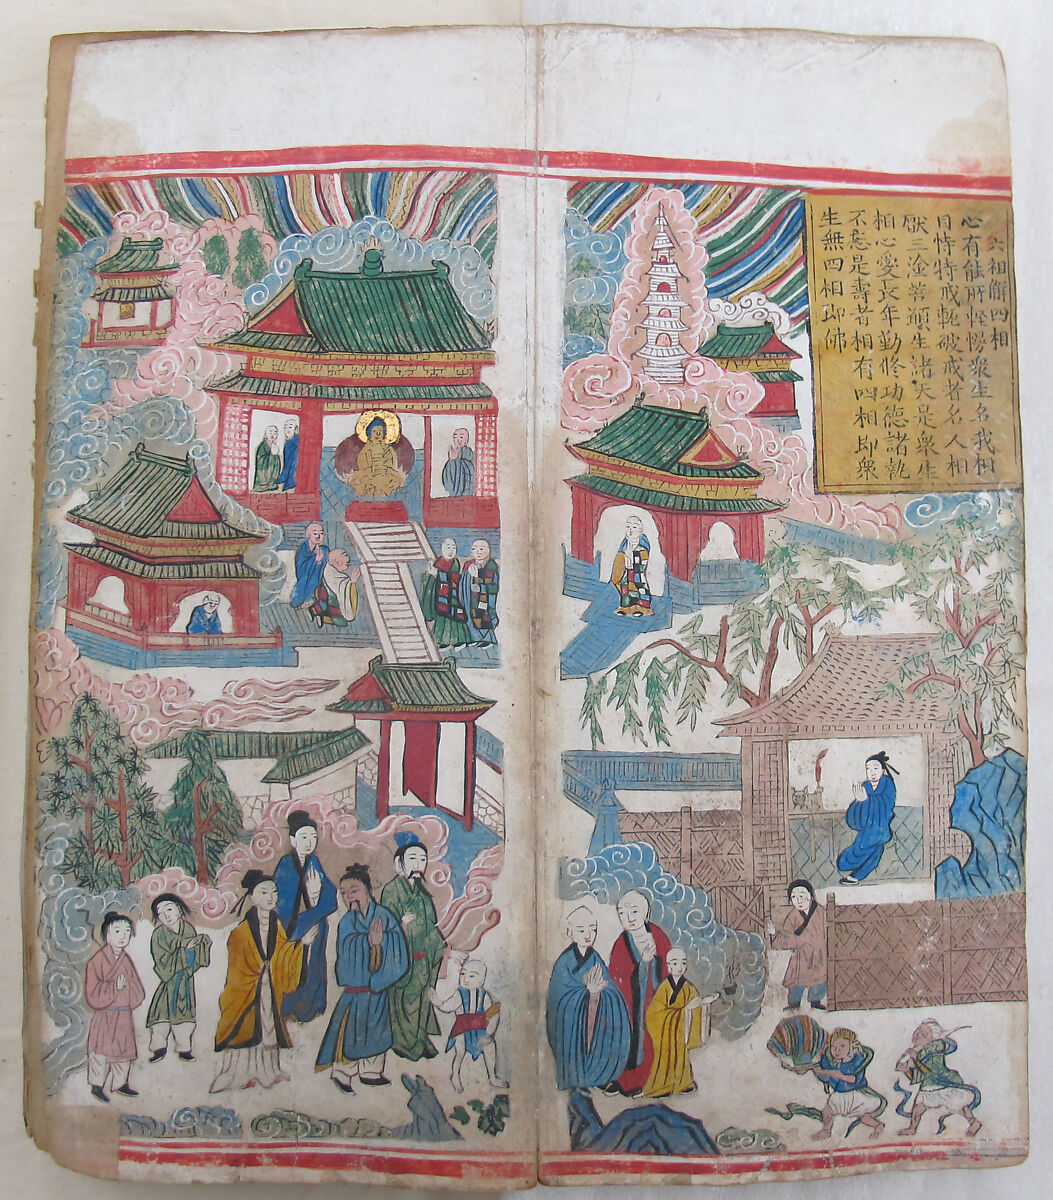 六祖解四相
心有能所輕慢衆生名我相
自恃持戒輕破戒者名人相
厭三塗苦願生諸天是衆生
相心愛長年勤修功德諸執
不忘是壽者相有四相即衆
生無四相即佛